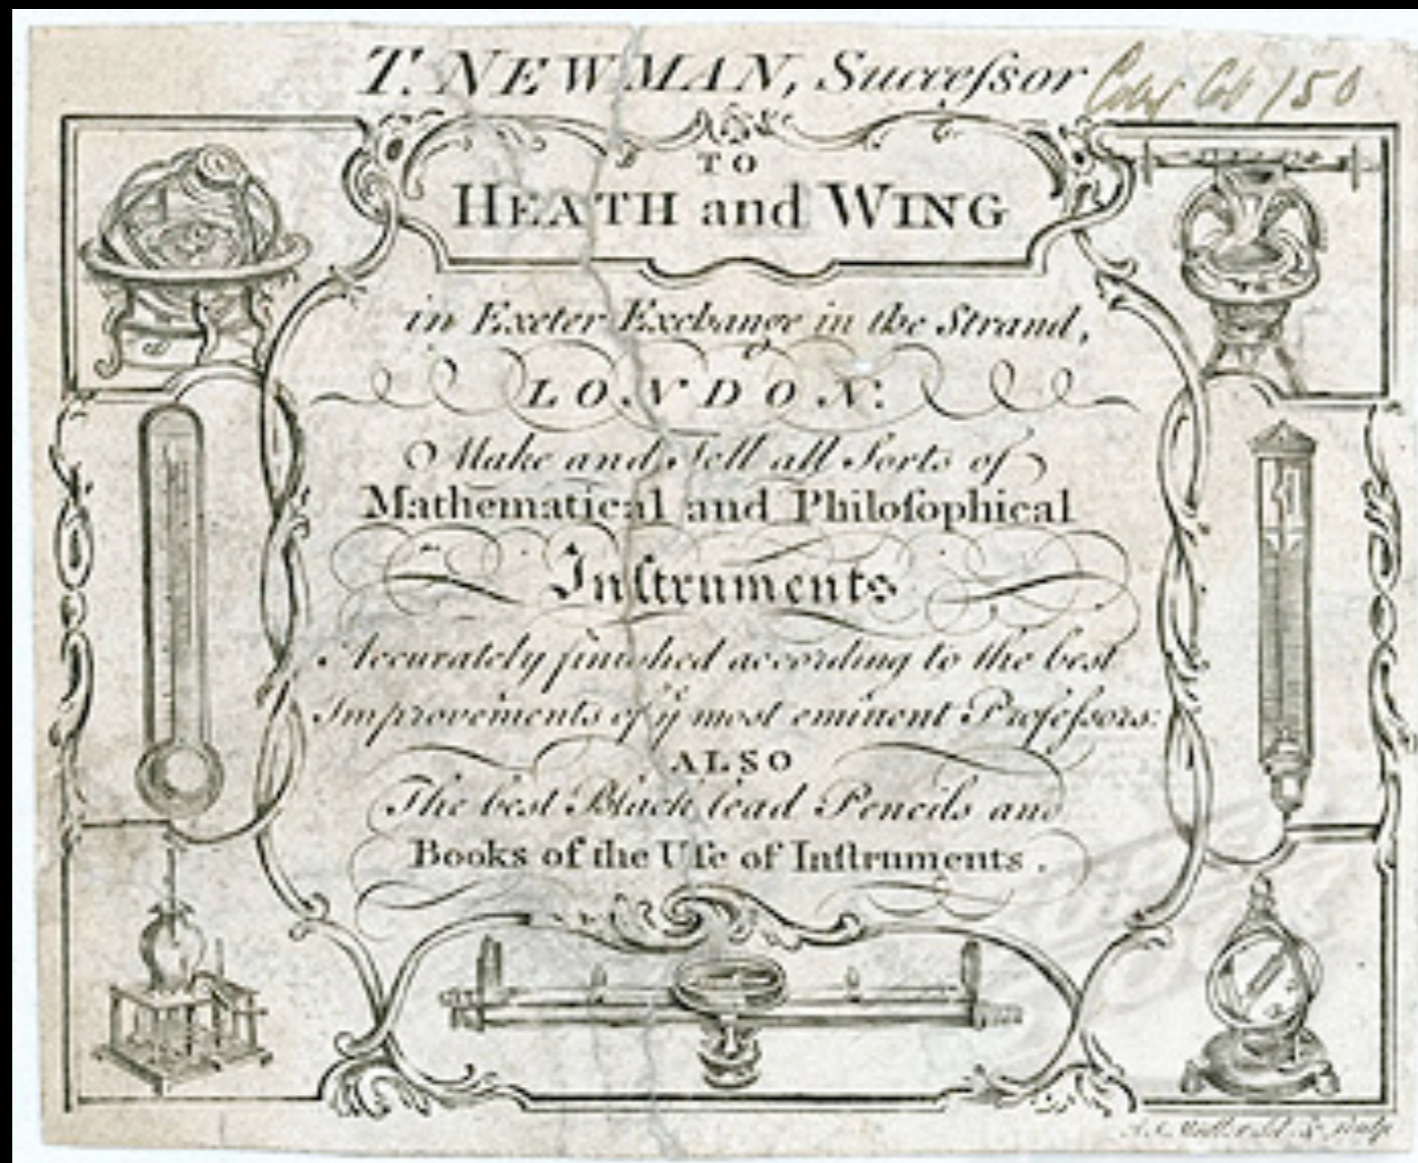 T. NEWMAN, Succeſsor
TO
HEATH and WING
in Exeter Exchange in the Strand,
LONDON:
Make and Sell all Sorts of
Mathematical and Philoſophical
Inſtruments
Accurately finished according to the best
Improvements of yᵉ most eminent Profeſsors:
ALSO
The best Black lead Pencils and
Books of the Uſe of Inſtruments.